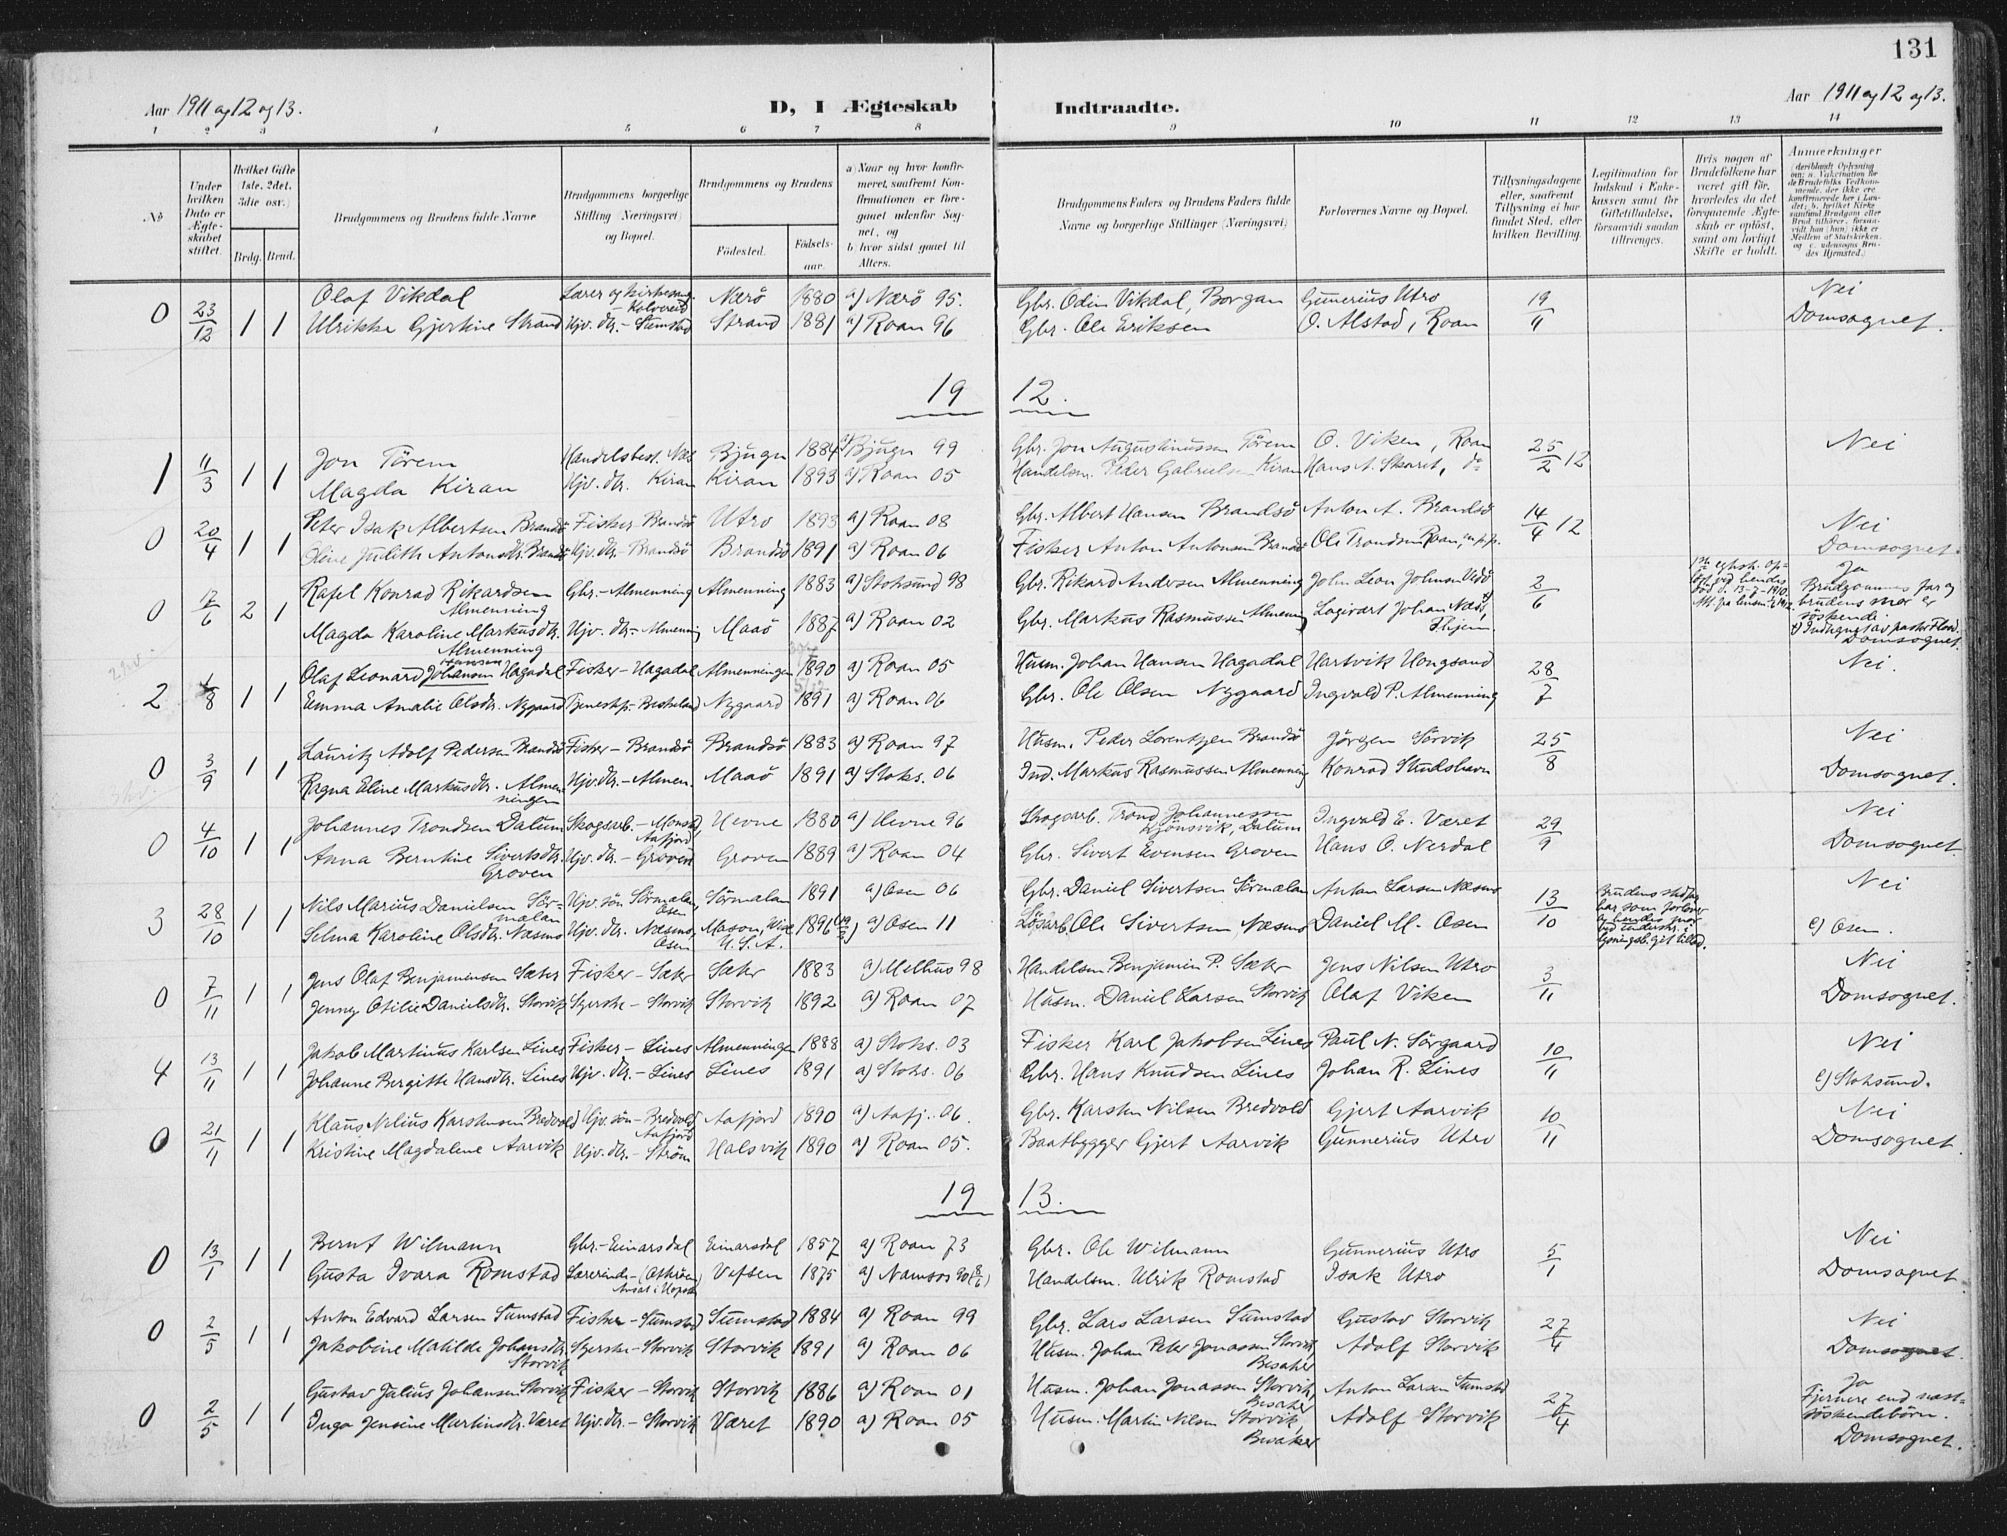 131
Aar 1911 og 12 og 13.
D, I Ægteskab Indtraadte.
Aar 1911 og 12 og 13.
1 2 3 4 5 6 7 8 9 10 11 12 13 14
No
Under hvilken Dato er Ægte-skabet stiftet.
Hvilket Gifte 1ste, 2det, 3die osv.)
Brdg. Brud.
Brudgommens og Brudens fulde Navne
Brudgommens borgerlige Stilling (Næringsvei) og Bopæl.
Brudgommens og Brudens
Födested. Födsels-aar.
a) Naar og hvor konfir-meret, saafremt Kon-firmationen er fore-gaaet udenfor Sog-net, og
b) hvor sidst gaaet til Alters.
Brudgommens Faders og Brudens Faders fulde Navne og borgerlige Stillinger (Næringsvei)
Forlovernes Navne og Bopæl.
Tillysningsdagene eller, saafremt Tillysning ei har fundet Sted, efter hvilken Bevilling.
Legitimation for Indskud i Enke-kassen samt for Giftetilladelse, forsaavidt saadan tiltrænges.
Hvis nogen af Brudefolkene har været gift för, hvorledes da det foregaaende Ægte-skab er oplöst, samt om lovligt Skifte er holdt.
Anmærkninger
0 23/12 1 1 Olaf Vikdal Lærer og kirkesang. Kolvereid Nærö 1880 a) Nærö 95. Gbr. Odin Vikdal, Borgan Gunerius Utro 19/11 Nei
Ulrikke Gjertine Strand Hjv. dtr. - Sumstad Strand 1881 a) Roan 96 Gbr. Ole Eriksen O. Alstad, Roan Domsognet.
19 12.
1 11/3 1 1 Jon Tørem Handelsbest. Næs Bjugn 1884 a) Bjugn 99 Gbr. Jon Augustinussen Tørem O. Viken, Roan 25/2 12 Nei
Magda Kiran Hjv. dtr. Kiran Kiran 1893 a) Roan 05 Handelsm. Peder Gabrielsen Kiran Hans A. Skaret, do
0 20/4 1 1 Peter Isak Albertsen Brandsö Fisker - Brandsö Utro 1893 a) Roan 08 Gbr. Albert Hansen Brandsö Anton A. Brandsö 14/4 12 Nei
Oline Judith Antonsdtr. Brandsö Hjv. dtr - Brandsö Brandsö 1891 a) Roan 06 Fisker Anton Antonsen Brandsö Ole Trondsen Roan, Domsognet.
0 17/6 2 1 Rafel Konrad Rikardsen Almenning Gbr. - Almenning Almenning 1883 a) Stoksund 98 Gbr. Rikard Andersen Almenning John Leon Johnsen 2/6 Ja
Magda Karoline Markusdtr. Almenning Hjv. dtr - Almenning Maaö 1887 a) Roan 02 Gbr. Markus Rasmussen Almenning Johan Næss, Brudgommens far og brudens mor er söskende.
Domsognet.
2 1/8 1 1 Olaf Leonard Johansen Hansen Hagadal Fisker - Hagadal Almenningen 1890 a) Roan 05 Husm. Johan Hansen Hagadal Hartvik Hongsand 28/7 Nei.
Emma Amalie Olsdtr. Nygaard Nygaard 1891 a) Roan 06 Gbr. Ole Olsen Nygaard Ingvald P. Almenning
0 3/9 1 1 Lauritz Adolf Pedersen Brandsö Fisker - Brandsö Brandsö 1883 a) Roan 97 Husm. Peder Lorentzen Brandsö Jörgen Sörvik 25/8 Nei
Ragna Eline Markusdtr. Almenningen Hjv. dtr. - Almen. Maaö 1891 a) Stoks. 06 Ind. Markus Rasmussen Almenning Konrad Studshavn Domsognet.
0 4/10 1 1 Johannes Trondsen Dalum Skogsarb. - Monstad, Aafjord Hevne 1880 a) Hevne 96 Skogsarb. Trond Johannessen Dalum Ingvald E. Været 29/9 Nei
Anna Berntine Sivertsdtr. Groven Hjv. dtr - Groven Groven 1889 a) Roan 04 Gbr. Sivert Evensen Groven Hans O. Nerdal Domsognet
3 28/10 1 1 Nils Marius Danielsen Sörmalan Hjv. sön Sörmalan, Osen Sörmalan 1891 a) Osen 06 Gbr. Daniel Sivertsen Sörmalan Anton Larsen Næsmo 13/10 Nei
Selma Karoline Olsdtr. Næsmo Hjv. dtr. Næsmo, Osen Mason, U.S.A. 1896 a) Osen 11 Lösarb. Ole Sivertsen Næsmo Daniel M. Osen c) Osen.
0 7/11 1 1 Jens Olaf Benjaminsen Sæter Fisker - Sæter Sæter 1883 a) Melhus 98 Handelsm Benjamin P. Sæter Jens Nilsen Utro 3/11 Nei
Jenny Otilie Danielsdtr. Storvik Syerske - Storvik Storvik 1892 a) Roan 07 Husm. Daniel Larsen Storvik Olaf Viken Domsognet.
4 13/11 1 1 Jakob Martinus Karlsen Lines Fisker - Lines Almenningen 1888 a) Stoks. 03 Fisker Karl Jakobsen Lines Paul N. Sörgaard 10/11 Nei
Johanne Bergitte Hansdtr. Lines Hjv. dtr. - Lines Lines 1891 a) Stoks. 06 Gbr. Hans Knudsen Lines Johan R. Lines c) Stoksund.
0 21/11 1 1 Klaus Nelius Karstensen Bredvold Hjv. sön - Bredvold, Aafjord Aafjord 1890 a) Aafj. 06 Gbr. Karsten Nilsen Bredvold Gjert Aarvik 10/11 Nei
Kristine Magdalene Aarvik Hjv. dtr. - Ström Halsvik 1890 a) Roan 05. Baatbygger Gjert Aarvik Gunnerius Utro Domsognet
19 13.
0 13/1 1 1 Bernt Wilmann Gbr. - Einarsdal Einarsdal 1857 a) Roan 73 Gbr. Ole Wilmann Gunnerius Utro 5/1 Nei
Gusta Ivara Romstad Lærerinde - Vefsen 1875 a) Namsos 90 (8/6) Handelsm. Ulrik Romstad Isak Utro Domsognet
0 2/5 1 1 Anton Edvard Larsen Sumstad Fisker - Sumstad Sumstad 1884 a) Roan 99 Gbr. Lars Larsen Sumstad Gustav Storvik 27/4 Nei
Jakobine Matilde Johansdtr. Storvik Syerske - Storvik Storvik 1891 a) Roan 06 Husm. Johan Peter Jonassen Storvik, Besaker Adolf Storvik Domsognet.
0 2/5 1 1 Gustav Julius Johansen Storvik Fisker - Storvik Storvik 1886 a) Roan 01 Husm. Johan Jonassen Storvik, Besaker Anton Larsen Sumstad 27/4 Ja
Inga Jensine Martinsdtr. Været Hjv. dtr. - Storvik Været 1890 a) Roan 05 Husm. Martin Nilsen Storvik, Besaker Adolf Storvik Fjernere end næst-söskendebörn.
Domsognet.